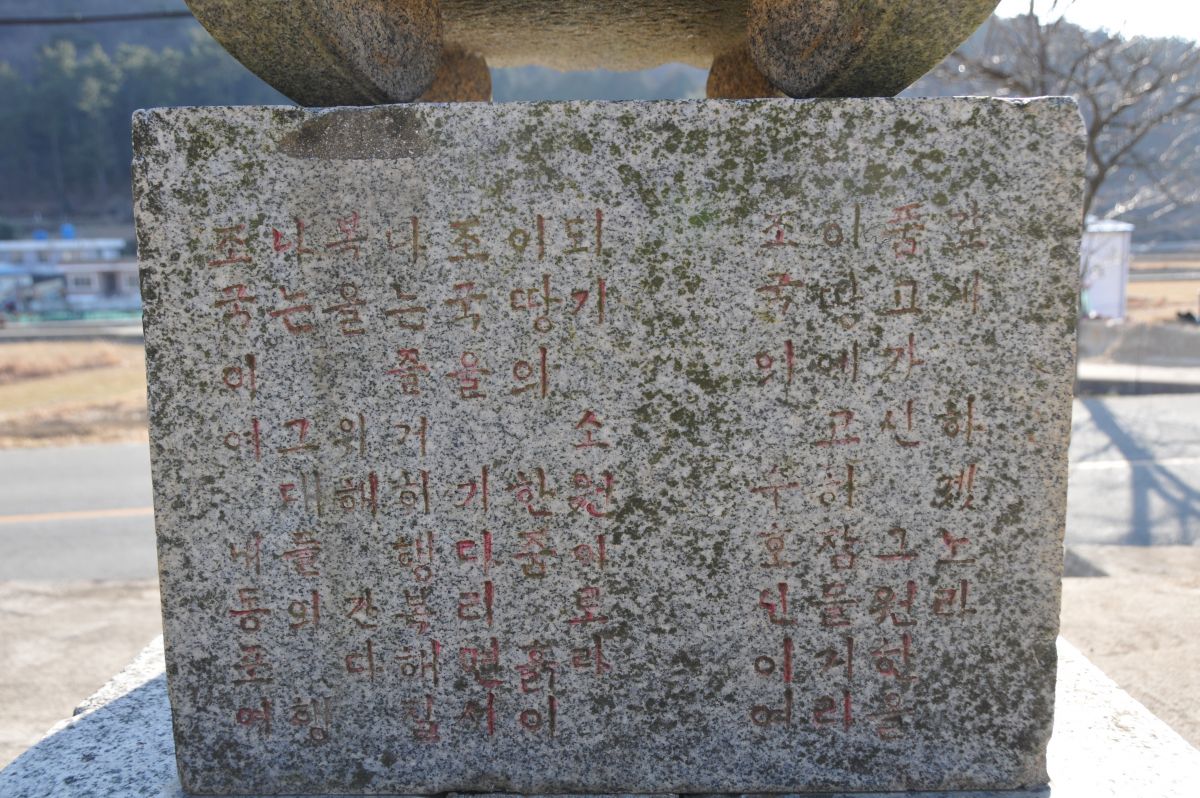 조국이여 내동포여
나는 그대들의 행
복을 위해 간다
나는 즐거히 행복해질
조국을 기다리면서
이땅의 한줌 흙이
되기 소원이로라
조국의 수호인이여
이땅에 고히잠들기리
품고가신 그원한을
갚게 하겟노라